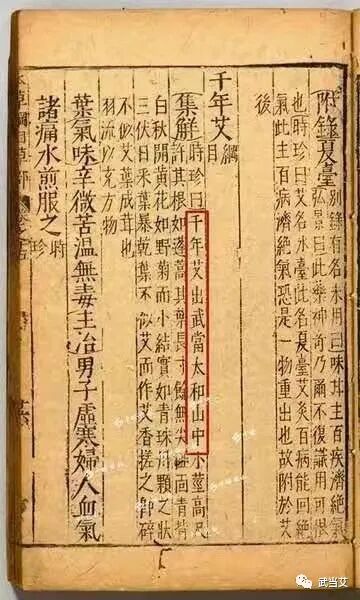 附錄夏臺
別錄有名未用曰味甘主百疾濟絕氣
弘景曰此藥神奇乃爾不復識用可恨
也時珍曰艾名氷臺此名夏臺艾灸百病能回絕
氣此主百病濟絕氣恐是一物重出也故附於艾
後
千年艾綱目
集解
時珍曰千年艾出武當太和山中小莖高尺
許其根如蓬蒿其葉長寸餘無尖椏面青背
白秋開黃花如野菊而小結實如青珠丹顆之狀
三伏日采葉暴乾葉不似艾而作艾香搓之即碎
不似艾葉成茸也
羽流以充方物
葉氣味辛微苦溫無毒主治男子虛寒婦人血氣
諸痛水煎服之時珍
本草綱目草部
武当艾